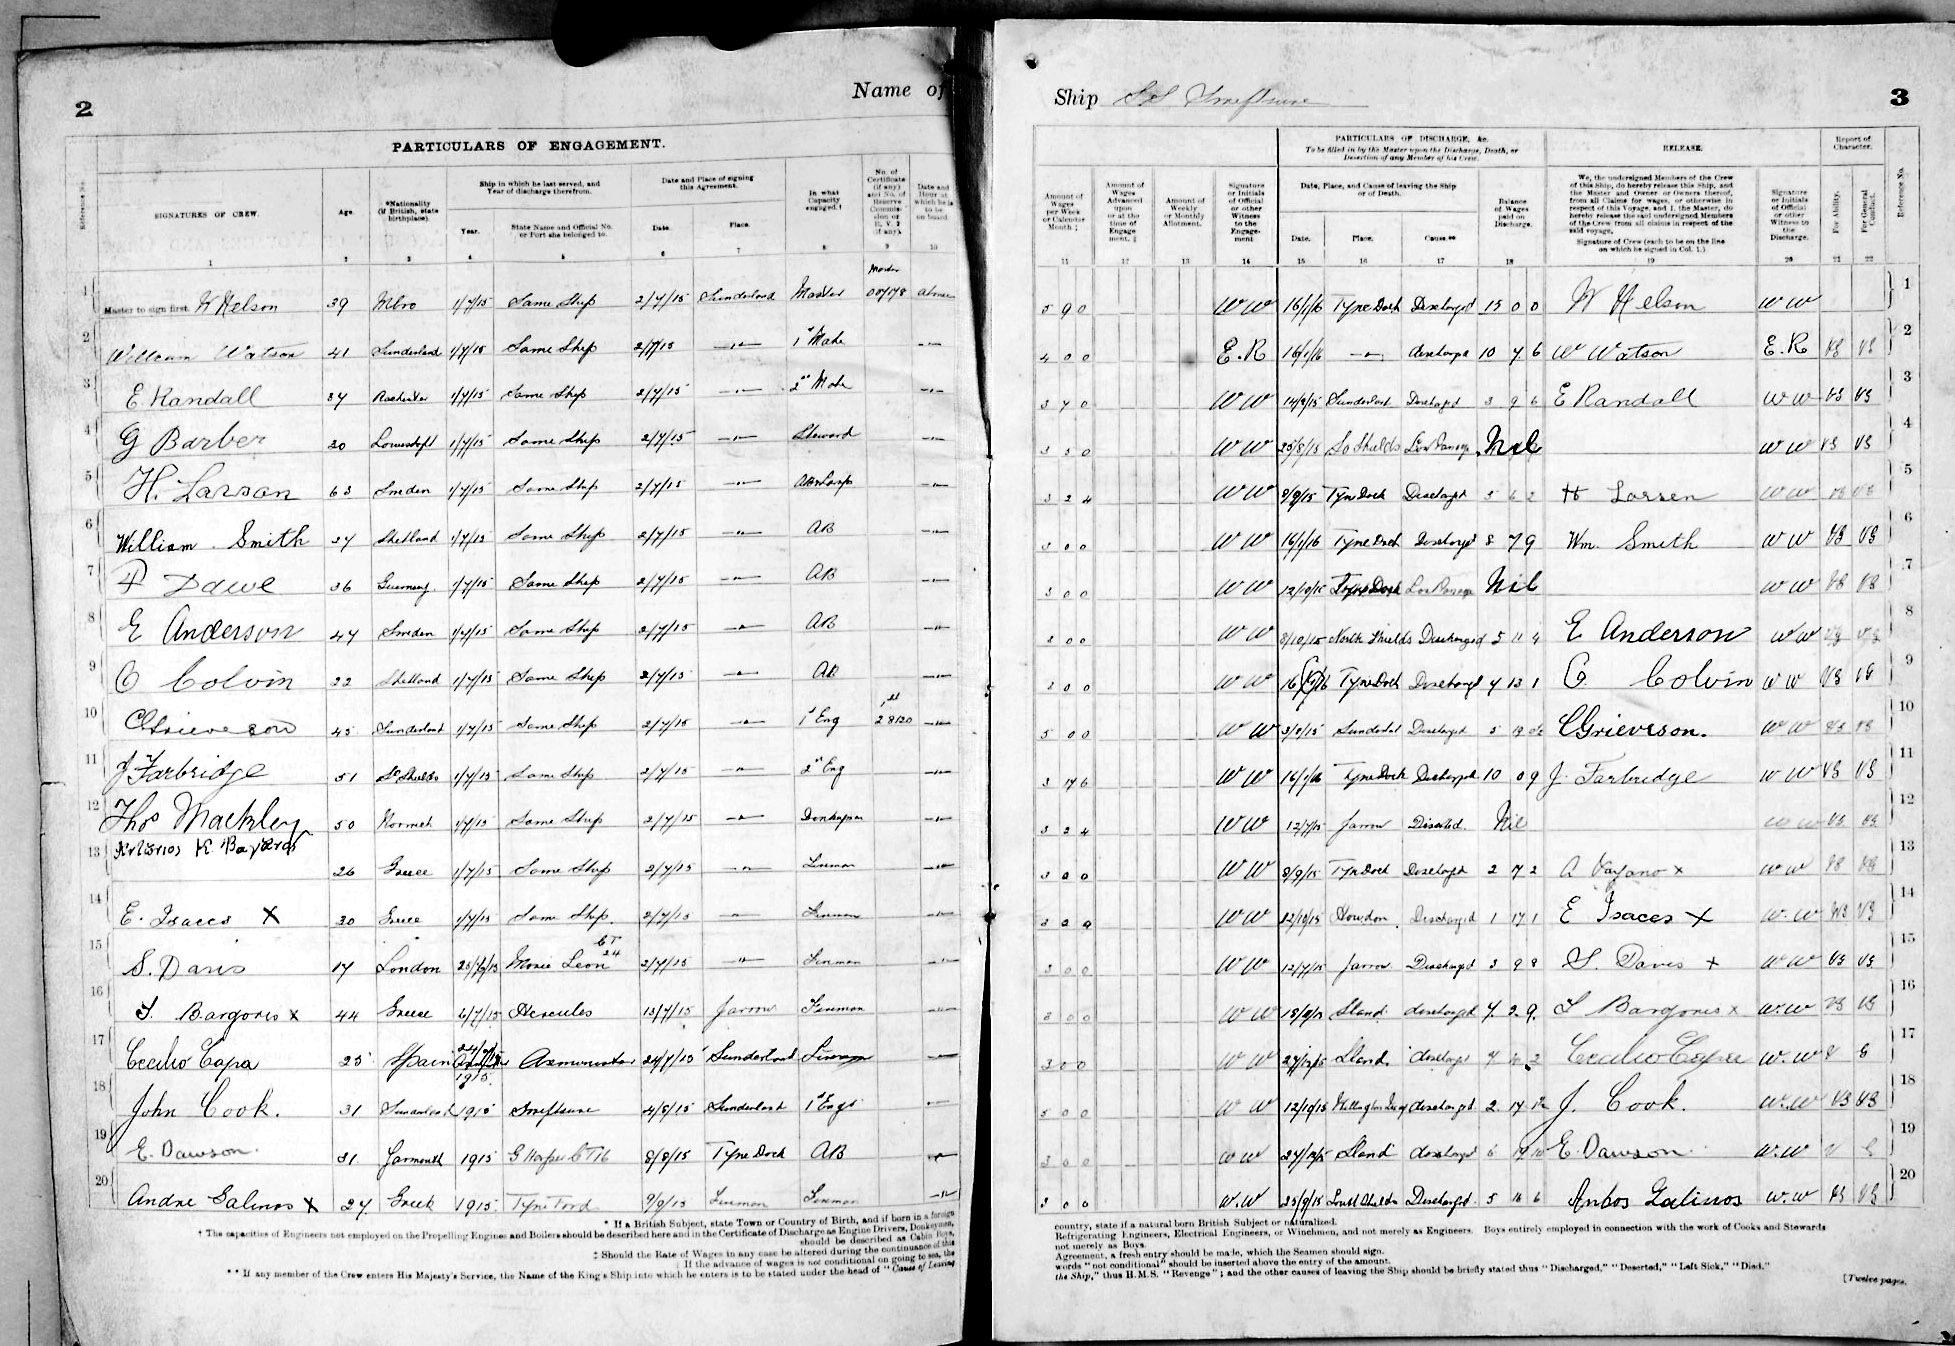 2
Name of
PARTICULARS OF ENGAGEMENT.
Reference No.
SIGNATURES OF CREW.
Age.
*Nationality (if British, state birthplace).
Ship in which he last served, and Year of discharge therefrom.
Year.
State Name and Official No. or Port she belonged to.
Date and Place of signing this Agreement.
Date.
Place.
In what Capacity engaged.†
No. of Certificate (if any) and No. of Reserve Commission or R.V.2 (if any).
Date and Hour at which he is to be on board
1 2 3 4 5 6 7 8 9 10
1 Master to sign first. W Nelson 39 Mbro 1/7/15 Same Ship 2/7/15 Sunderland Master above
2 William Watson 41 Sunderland 1/7/15 Same Ship 2/7/15 —"— 1st Mate —"—
3 E Randall 1/7/15 Same Ship 2/7/15 —"— 2nd Mate —"—
4 G Barber Lowestoft 1/7/15 Same Ship 2/7/15 —"— Steward —"—
5 H. Larson 63 Sweden 1/7/15 Same Ship 2/7/15 —"— —"—
6 William Smith Shetland 1/7/15 Same Ship 2/7/15 —"— AB —"—
7 Dawe 36 Guernsey 1/7/15 Same Ship 2/7/15 —"— AB —"—
8 E Anderson 47 Sweden 1/7/15 Same Ship 2/7/15 —"— AB —"—
9 C Colvin 22 Shetland 1/7/15 Same Ship 2/7/15 —"— AB —"—
10 C Grieveson 45 Sunderland 1/7/15 Same Ship 2/7/15 —"— 1st Eng 28120 —"—
11 J Farbridge 51 So Shields 1/7/15 Same Ship 2/7/15 —"— 2nd Eng —"—
12 Thos Mackley 50 Norwich 1/7/15 Same Ship 2/7/15 —"— Donkeyman —"—
13 26 Greece 1/7/15 Same Ship 2/7/15 —"— Fireman —"—
14 E. Isaces X 30 Greece 1/7/15 Same Ship 2/7/15 —"— Fireman —"—
15 S. Davis 17 London Leon 24 2/7/15 —"— Fireman —"—
16 Bargoris x 44 Greece 6/7/15 Hercules 13/7/15 Jarrow Fireman —"—
17 Cecilio Capa 25 Spain 1915 Axminster 24/7/15 Sunderland Fireman —"—
18 John Cook. 31 Sunderland 1915 Swiftsure 4/8/15 Sunderland 1st Engr —"—
19 E. Dawson 31 Yarmouth 1915 G Harper 8/8/15 Tyne Dock AB —"—
20 Andre Galinos X 27 Greek 1915 Tyne Ford 9/9/15 Fireman Fireman —"—
* If a British Subject, state Town or Country of Birth, and if born in a foreign
† The capacities of Engineers not employed on the Propelling Engines and Boilers should be described here and in the Certificate of Discharge as Engine Drivers, Donkeymen,
should be described as Cabin Boys,
‡ Should the Rate of Wages in any case be altered during the continuance of this
If the advance of wages is not conditional on going to sea, the
** If any member of the Crew enters His Majesty's Service, the Name of the King's Ship into which he enters is to be stated under the head of "Cause of Leaving
Ship SS Swiftsure
3
PARTICULARS OF DISCHARGE, &c.
To be filled in by the Master upon the Discharge, Death, or Desertion of any Member of his Crew.
RELEASE.
Report of Character.
Amount of Wages per Week or Calendar Month ‡
Amount of Wages Advanced upon or at the time of Engagement. ‡
Amount of Weekly or Monthly Allotment.
Signature or Initials of Official or other Witness to the Engagement
Date, Place, and Cause of leaving the Ship or of Death.
Date.
Place.
Cause **
Balance of Wages paid on Discharge.
We, the undersigned Members of the Crew of this Ship, do hereby release this Ship, and the Master and Owner or Owners thereof, from all Claims for wages, or otherwise in respect of this Voyage, and I, the Master, do hereby release the said undersigned Members of the Crew from all claims in respect of the said voyage.
Signature of Crew (each to be on the line on which he signed in Col. 1.)
Signature or Initials of Official or other Witness to the Discharge.
For Ability.
For General Conduct.
Reference No.
11 12 13 14 15 16 17 18 19 20 21 22
5 9 0 WW 16/1/16 Tyne Dock Discharged 15 0 0 W Nelson WW 1
4 0 0 E.R 16/1/16 —"— discharged 10 7 6 W Watson E.R VG VG 2
3 7 0 WW Sunderland Discharged 3 9 6 E Randall WW VG VG 3
3 5 0 WW 25/8/15 So Shields Nil WW VG VG 4
3 2 4 WW 8/9/15 Tyne Dock Discharged 5 6 2 H Larsen WW VG VG 5
3 0 0 WW 16/1/16 Tyne Dock Discharged 8 7 9 Wm. Smith WW VG VG 6
3 0 0 WW 12/10/15 Tyne Dock Nil WW VG VG 7
3 0 0 WW 8/10/15 North Shields Discharged 5 11 9 E Anderson WW VG VG 8
3 0 0 WW 16/1/16 Tyne Dock Discharged 4 13 1 C. Colvin WW VG VG 9
5 0 0 WW Discharged 5 C Grieveson. WW VG VG 10
3 17 6 WW 16/1/16 Tyne Dock Discharged 10 0 9 J. Farbridge WW VG VG 11
3 2 4 WW 12/7/15 Jarrow Deserted. Nil WW VG VG 12
3 0 0 WW 8/9/15 Tyne Dock Discharged 2 7 2 A Vayano x WW VG VG 13
WW 12/10/15 Howdon Discharged 1 17 1 E Isaces X W.W VG VG 14
3 0 0 WW 12/7/15 Jarrow Discharged 3 9 8 S. Davis x WW VG VG 15
3 0 0 WW S'land discharged 7. 2. 9. Bargoris x W.W VG VG 16
3 0 0 WW S'land discharged Cecilio Capa W.W V G 17
5 0 0 WW 12/10/15 discharged 2. 17 J. Cook. W.W VG VG 18
3 0 0 WW S'land discharged E. Dawson W.W V G 19
3 0 0 W.W 25/9/15 South Shields Discharged 5 16 6 Galinos W.W VG VG 20
country, state if a natural born British Subject or naturalized.
Refrigerating Engineers, Electrical Engineers, or Winchmen, and not merely as Engineers. Boys entirely employed in connection with the work of Cooks and Stewards
not merely as Boys.
Agreement, a fresh entry should be made, which the Seamen should sign.
words "not conditional" should be inserted above the entry of the amount.
the Ship," thus H.M.S. "Revenge"; and the other causes of leaving the Ship should be briefly stated thus "Discharged," "Deserted," "Left Sick," "Died."
[Twelve pages.